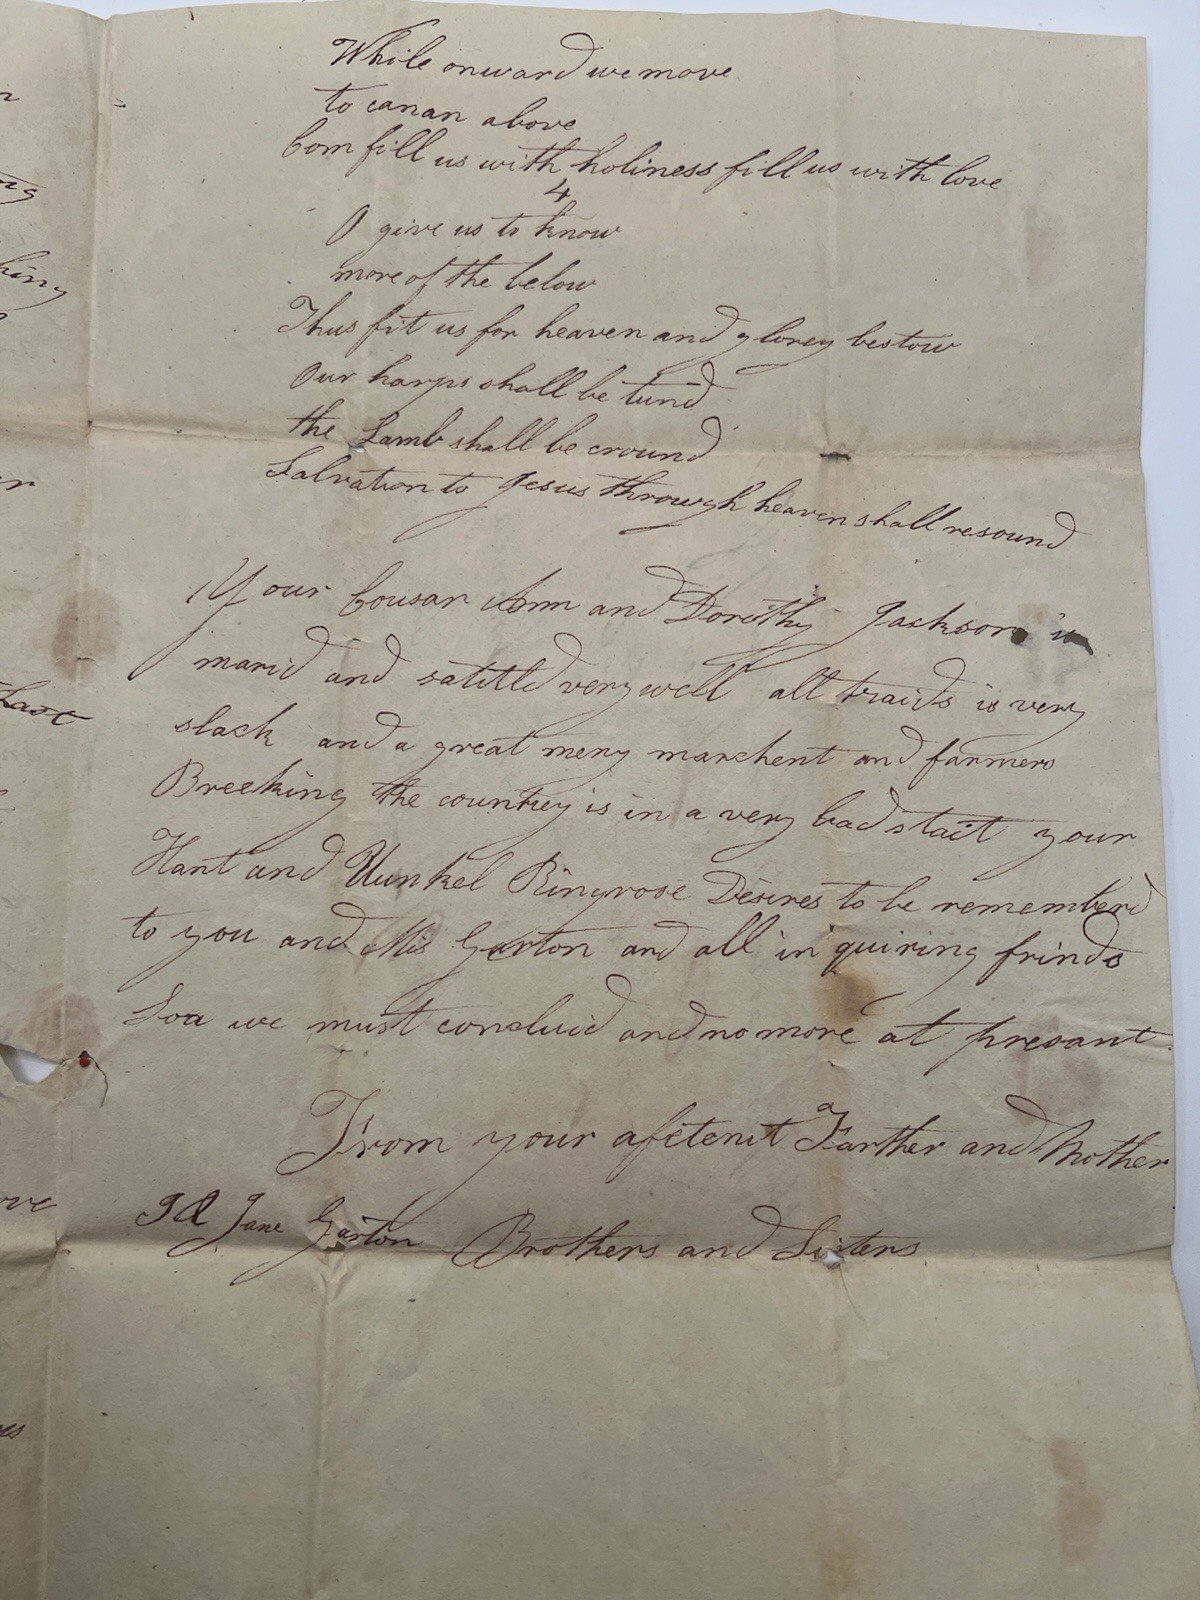 While onward we move
to canan above
Com fill us with holiness fill us with love
4
O give us to know
more of the below
Thus fit us for heaven and glorey bestow
Our harps shall be tund
the Lamb shall be cround
Salvation to Jesus through heaven shall resound
Your Cousan Ann and Dorithy Jackson is
marid and satitld very well all traids is very
slack and a great meny marchent and farmers
Breeking the countrey is in a very bad stait your
Hant and Uunkel Ringrose Desires to be rememberd
to you and Mis Garton and all in quiring frinds
Soa we must concluid and no more at presant
From your afctenit Farther and Mother
J & Jane Garton Brothers and Sisters